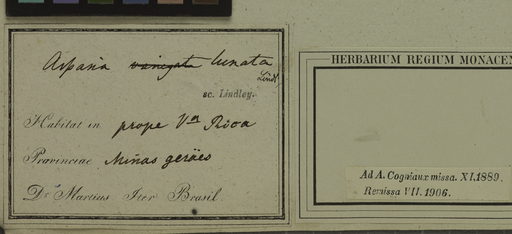 Aspasia variegata lunata
Lindl
sc. Lindley.
Habitat in prope Va Rica
Provinciae Minas geräes
Dr. Martius Iter Brasil.
HERBARIUM REGIUM MONACEN
Ad A. Cogniaux missa. XI.1889.
Remissa VII. 1906.